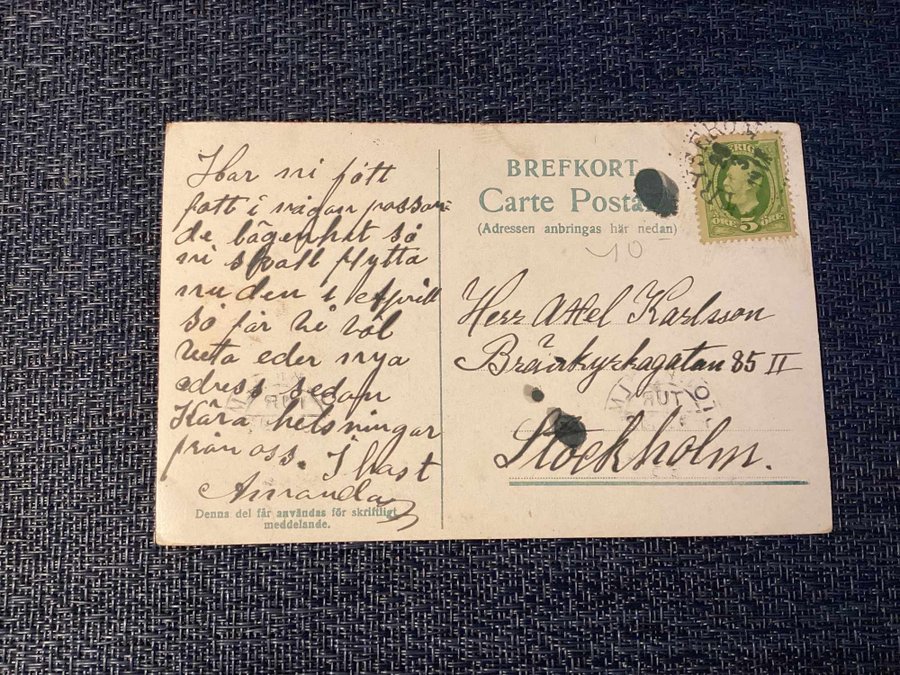 Har ni fått
fatt i någan passan=
de lägenhet så
ni skall flytta
nu den 1 april
så får vi väl
veta eder nya
adress sedan
Kära helsningar
från oss. I hast
Amanda
Denna del får användas för skriftligt
meddelande.
BREFKORT
Carte Posta
(Adressen anbringas här nedan)
10
Herr Axel Karlsson
Brännkyrkagatan 85 II
Stockholm.
ÖRE 5 ÖRE